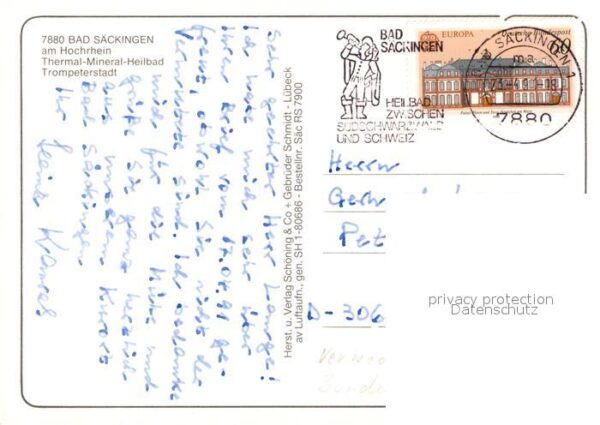 7880 BAD SÄCKINGEN
am Hochrhein
Thermal-Mineral-Heilbad
Trompeterstadt
Sehr geehrter Herr Lange!
Ich habe mich sehr über
Ihren Brief vom 17.04.91 ge-
freut, obwohl Sie nicht der
Vermisste sind. Ich bedanke
mich für die Mühe und
grüße Sie ganz herzlich
aus unserem Kurort
Bad Säckingen
Ihr
Herst. u. Verlag Schöning & Co + Gebrüder Schmidt - Lübeck
av Luftaufn., gen. SH 1-80686 - Bestellnr. Säc RS 7900
BAD
SÄCKINGEN
HEILBAD
ZWISCHEN
SÜDSCHWARZWALD
UND SCHWEIZ
EUROPA
Deutsche Bundespost
60
SÄCKINGEN 1
ma
7880
Herrn
Gerh
Pet
D-306
privacy protection
Datenschutz